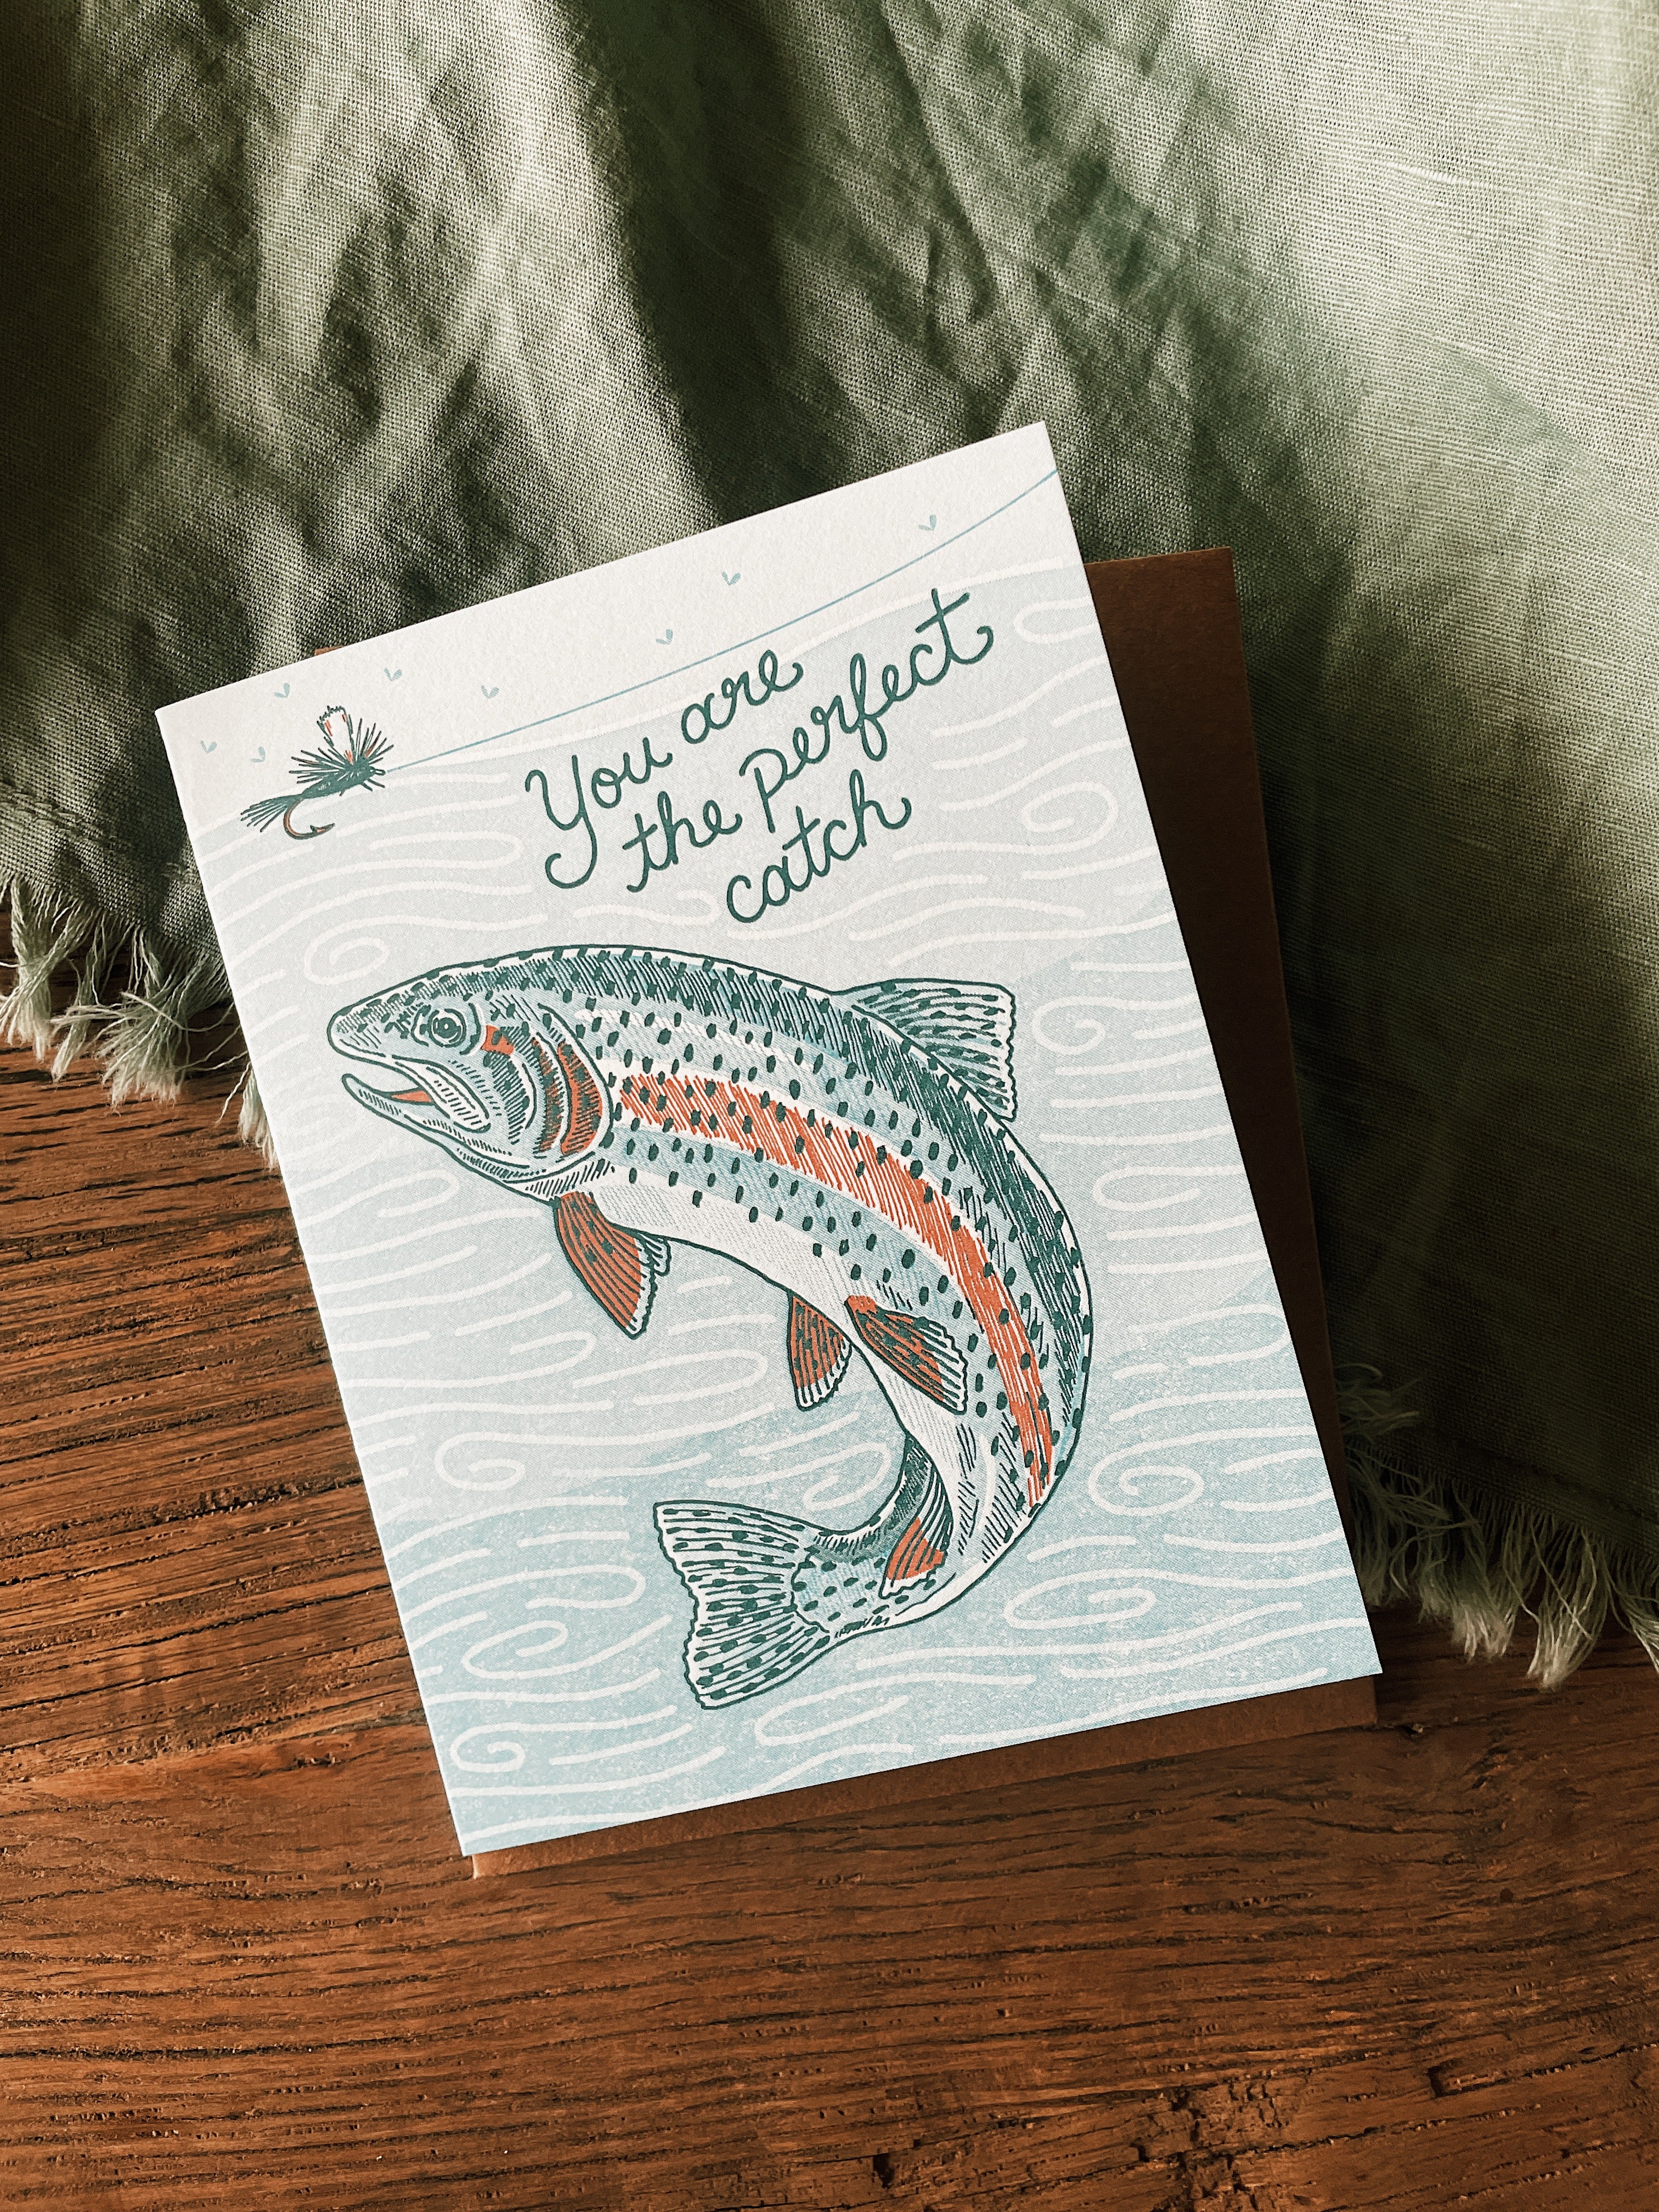 You are
the perfect
catch